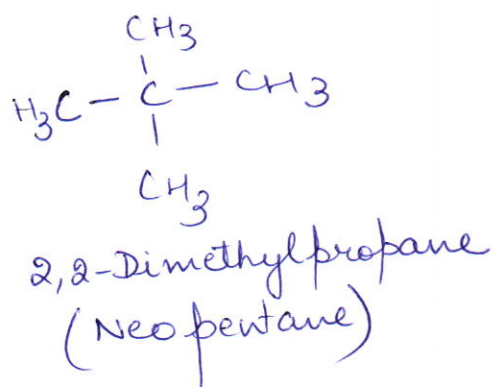 CH3
H3C - C - CH3
CH3
2,2-Dimethylpropane
(Neopentane)